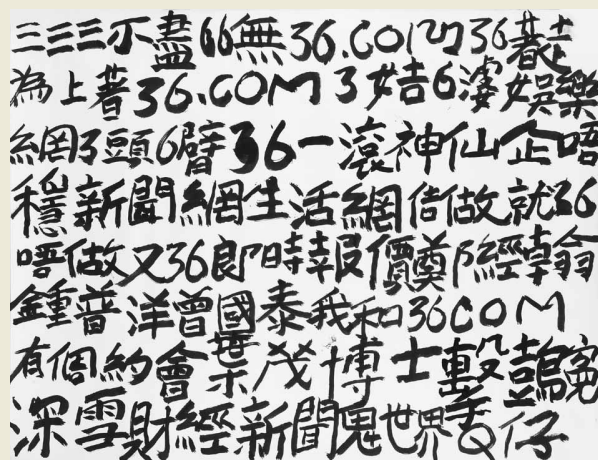 三三三不盡66無36.COM36裁
為上著36.COM3姑6婆娛樂
網3頭6臂36一滾神仙企唔
穩新聞網生活網佶做就36
唔做又36郎時報價奠經翁
鍾普洋曾國泰我和36COM
有個約會葉茂博士
深雪財經新聞鬼世界仔